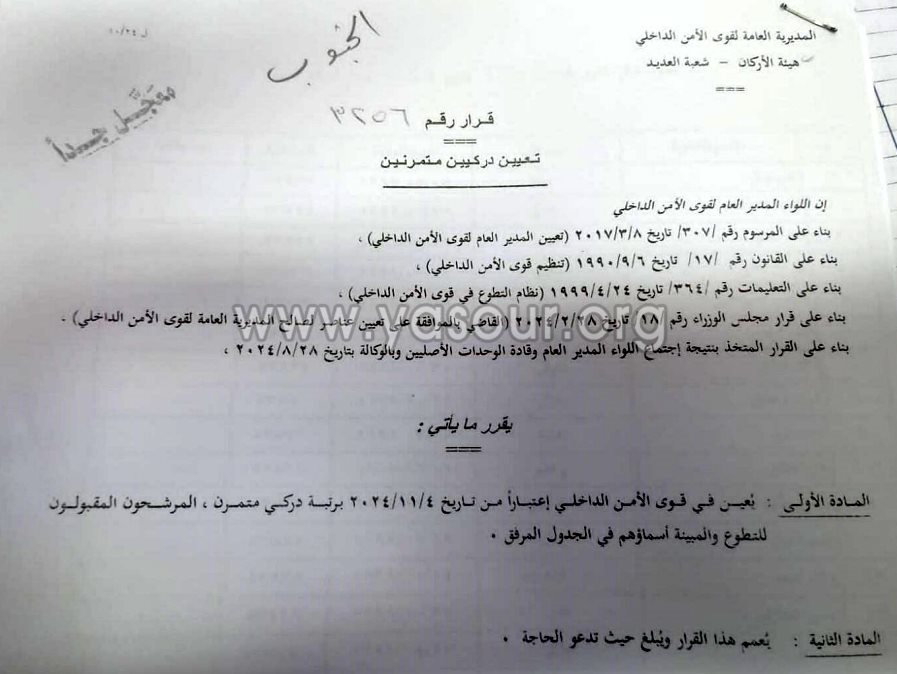 المديرية العامة لقوى الأمن الداخلي
هيئة الأركان - شعبة العديد
===
ل ١٠/٢٤
الجنوب
معجّل جداً
قرار رقم ٣٢٥٦
===
تعيين دركيين متمرنين
إن اللواء المدير العام لقوى الأمن الداخلي
بناء على المرسوم رقم /٣٠٧/ تاريخ ٢٠١٧/٣/٨ (تعيين المدير العام لقوى الأمن الداخلي) ،
بناء على القانون رقم /١٧/ تاريخ ١٩٩٠/٩/٦ (تنظيم قوى الأمن الداخلي) ،
بناء على التعليمات رقم /٣٦٤/ تاريخ ١٩٩٩/٤/٢٤ (نظام التطوع في قوى الأمن الداخلي) ،
بناء على قرار مجلس الوزراء رقم /١٨/ تاريخ ٢٠٢٤/٢/٢٨ (القاضي بالموافقة على تعيين عناصر لصالح المديرية العامة لقوى الأمن الداخلي) .
بناء على القرار المتخذ بنتيجة إجتماع اللواء المدير العام وقادة الوحدات الأصليين وبالوكالة بتاريخ ٢٠٢٤/٨/٢٨ ،
www.yasour.org
يقرر ما يأتي :
===
المادة الأولى : يُعين في قوى الأمن الداخلي إعتباراً من تاريخ ٢٠٢٤/١١/٤ برتبة دركي متمرن ، المرشحون المقبولون
للتطوع والمبينة أسماؤهم في الجدول المرفق .
المادة الثانية : يُعمم هذا القرار ويُبلغ حيث تدعو الحاجة .